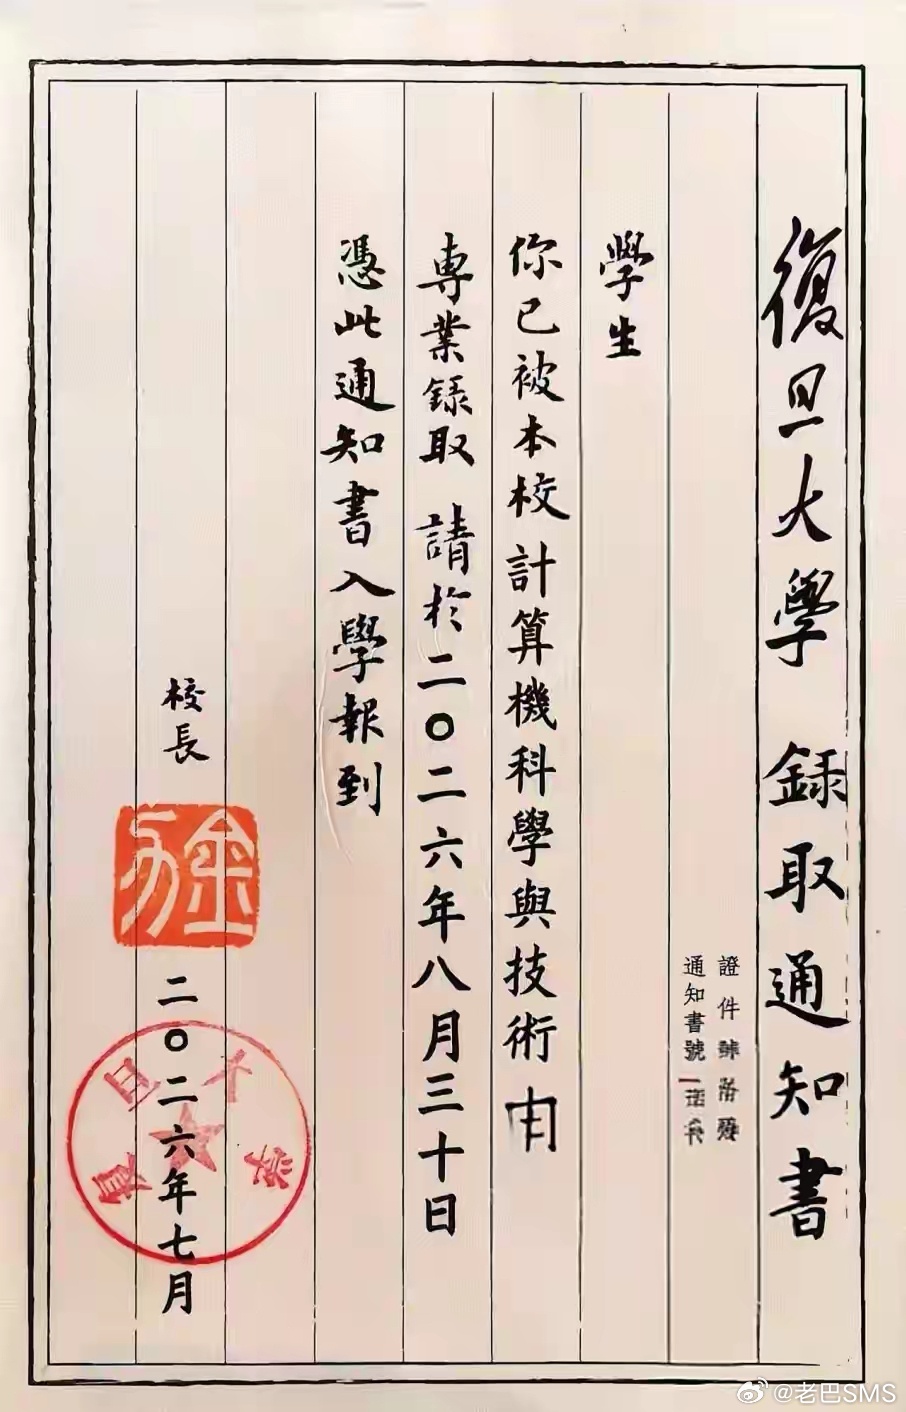 復旦大學 錄取通知書
證件
通知書號
學生
你已被本校計算機科學與技術
專業錄取 請於二〇二六年八月三十日
憑此通知書入學報到
校長
二〇二六年七月
復旦大學
@老巴SMS